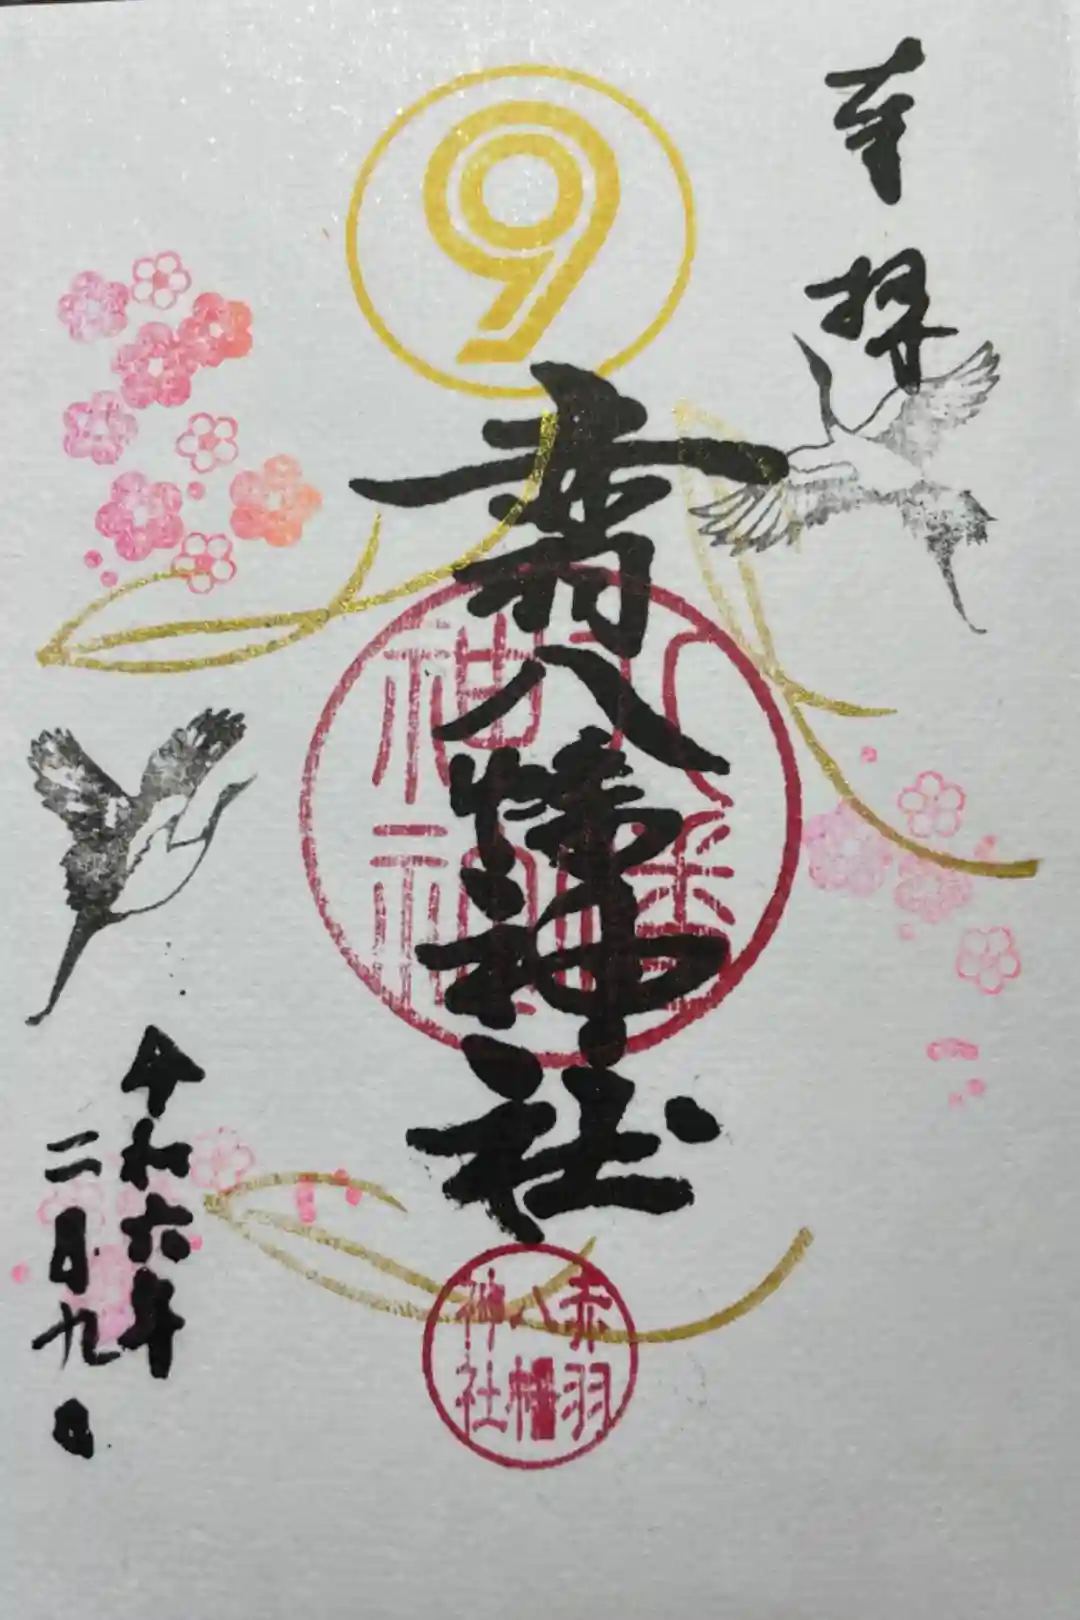 奉拝
9
赤羽八幡神社
八幡
神社
令和六年
二月九日
赤羽
八幡
神社